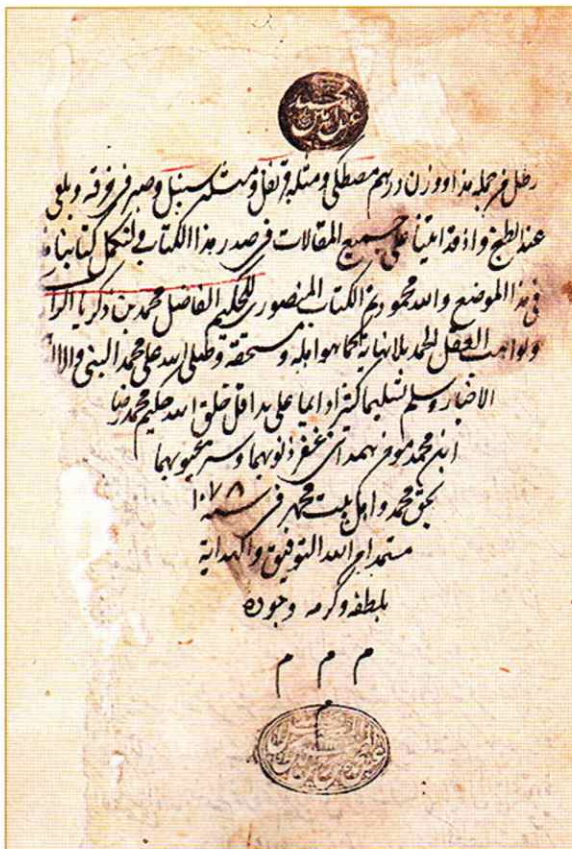 رطل فى حمله هذا ووزن درهم مصطكى ومثله قرنفل ومثله سنبل وصير فى خرقه ويلقى
عند الطبخ واذ قد اتينا على جميع المقالات فى صدر هذا الكتاب فلنكمل كتابنا
فى هذا الموضع والله محمود تم الكتاب المنصورى للحكيم الفاضل محمد بن زكريا
ولواهب العقل الحمد بلا نهاية كما هو اهله ومستحقه وصلى الله على محمد النبى واله
الاخيار وسلم تسليما كثيرا دايما على يد اقل خلق الله حكيم محمد رضا
ابن محمد مومن همدانى غفر ذنوبهما وستر عيوبهما
بحق محمد واهل بيت محمد فى سنه ١٠٧٨
مستمدا من الله التوفيق والهداية
بلطفه وكرمه وجوده
م م م